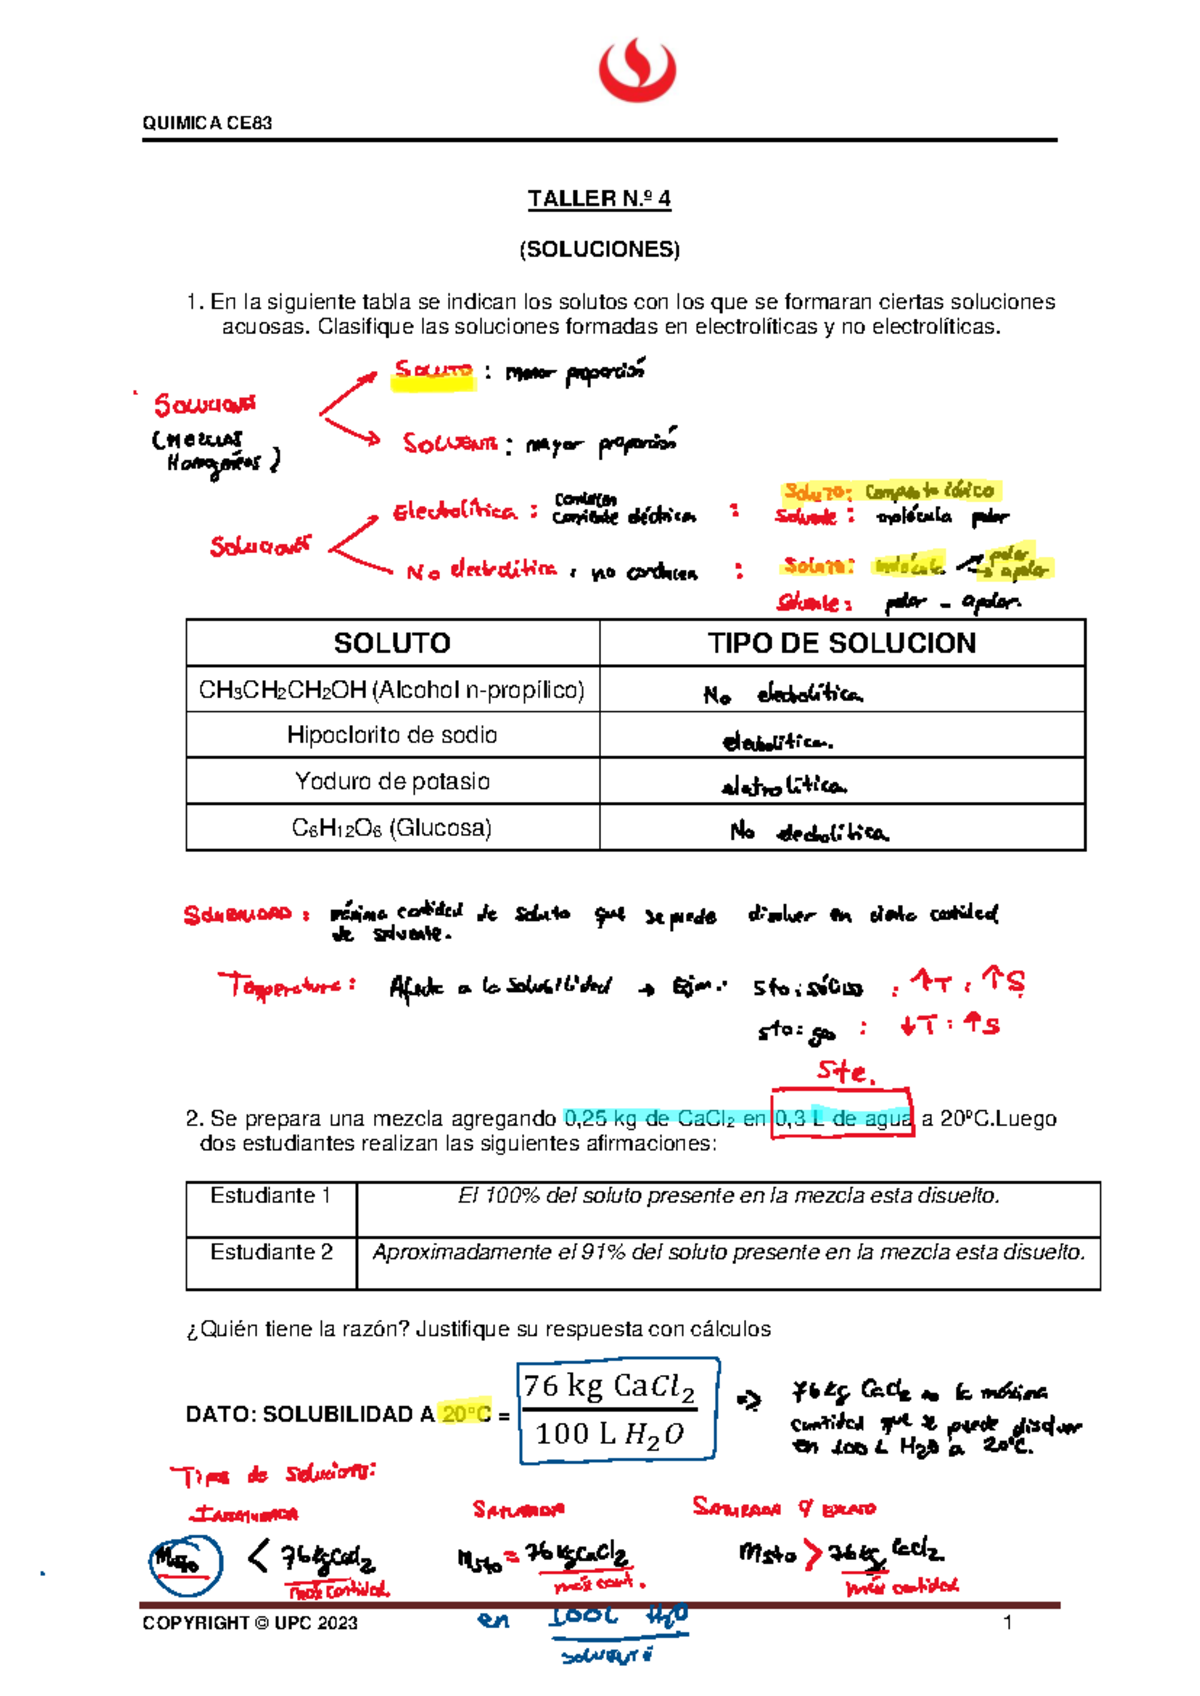 QUIMICA CE83
TALLER N.º 4
(SOLUCIONES)
1. En la siguiente tabla se indican los solutos con los que se formaran ciertas soluciones
acuosas. Clasifique las soluciones formadas en electrolíticas y no electrolíticas.
SOLUTO : menor proporción
SOLUCIONES
(MEZCLAS
Homogéneas)
SOLVENTE : mayor proporción
Electrolítica : conducen
corriente eléctrica :
Soluto: Compuesto iónico
Solvente : molécula polar
SOLUCIONES
No electrolítica : no conducen :
Soluto: molécula polar
apolar
Solvente : polar - apolar.
SOLUTO TIPO DE SOLUCION
CH3CH2CH2OH (Alcohol n-propílico) No electrolítica.
Hipoclorito de sodio electrolítica.
Yoduro de potasio eletrolítica.
C6H12O6 (Glucosa) No electrolítica.
SOLUBILIDAD : máxima cantidad de soluto que se puede disolver en cierta cantidad
de solvente.
Temperatura : Afecta a la solubilidad → Ejm.: Sto: sólido : ↑T : ↑S
sto: gas : ↓T : ↑S
Ste.
2. Se prepara una mezcla agregando 0,25 kg de CaCl₂ en 0,3 L de agua a 20ºC.Luego
dos estudiantes realizan las siguientes afirmaciones:
Estudiante 1 El 100% del soluto presente en la mezcla esta disuelto.
Estudiante 2 Aproximadamente el 91% del soluto presente en la mezcla esta disuelto.
¿Quién tiene la razón? Justifique su respuesta con cálculos
DATO: SOLUBILIDAD A 20°C = 76 kg CaCl₂ / 100 L H₂O
⇒ 76 kg CaCl₂ es la máxima
cantidad que se puede disolver
en 100 L H₂O a 20°C.
Tipos de soluciones:
INSATURADA SATURADA SATURADA Y EXCESO
Msto < 76 kg CaCl₂ Msto = 76 kg CaCl₂ Msto > 76 kg CaCl₂
máx cantidad. máx cant. máx cantidad
COPYRIGHT © UPC 2023 1
en 100L H₂O
SOLVENTE